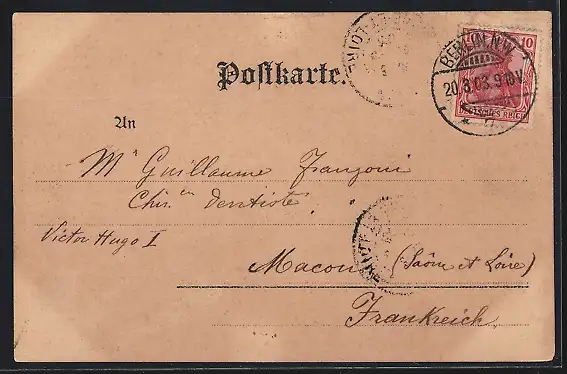 Postkarte.
10
BERLIN. N.W.
20.3.03.9-10V.
DEUTSCHES REICH
An
Mr Guillaume Franzoni
Chir. en dentiste
Victor Hugo I
Macon (Saône et Loire)
Frankreich